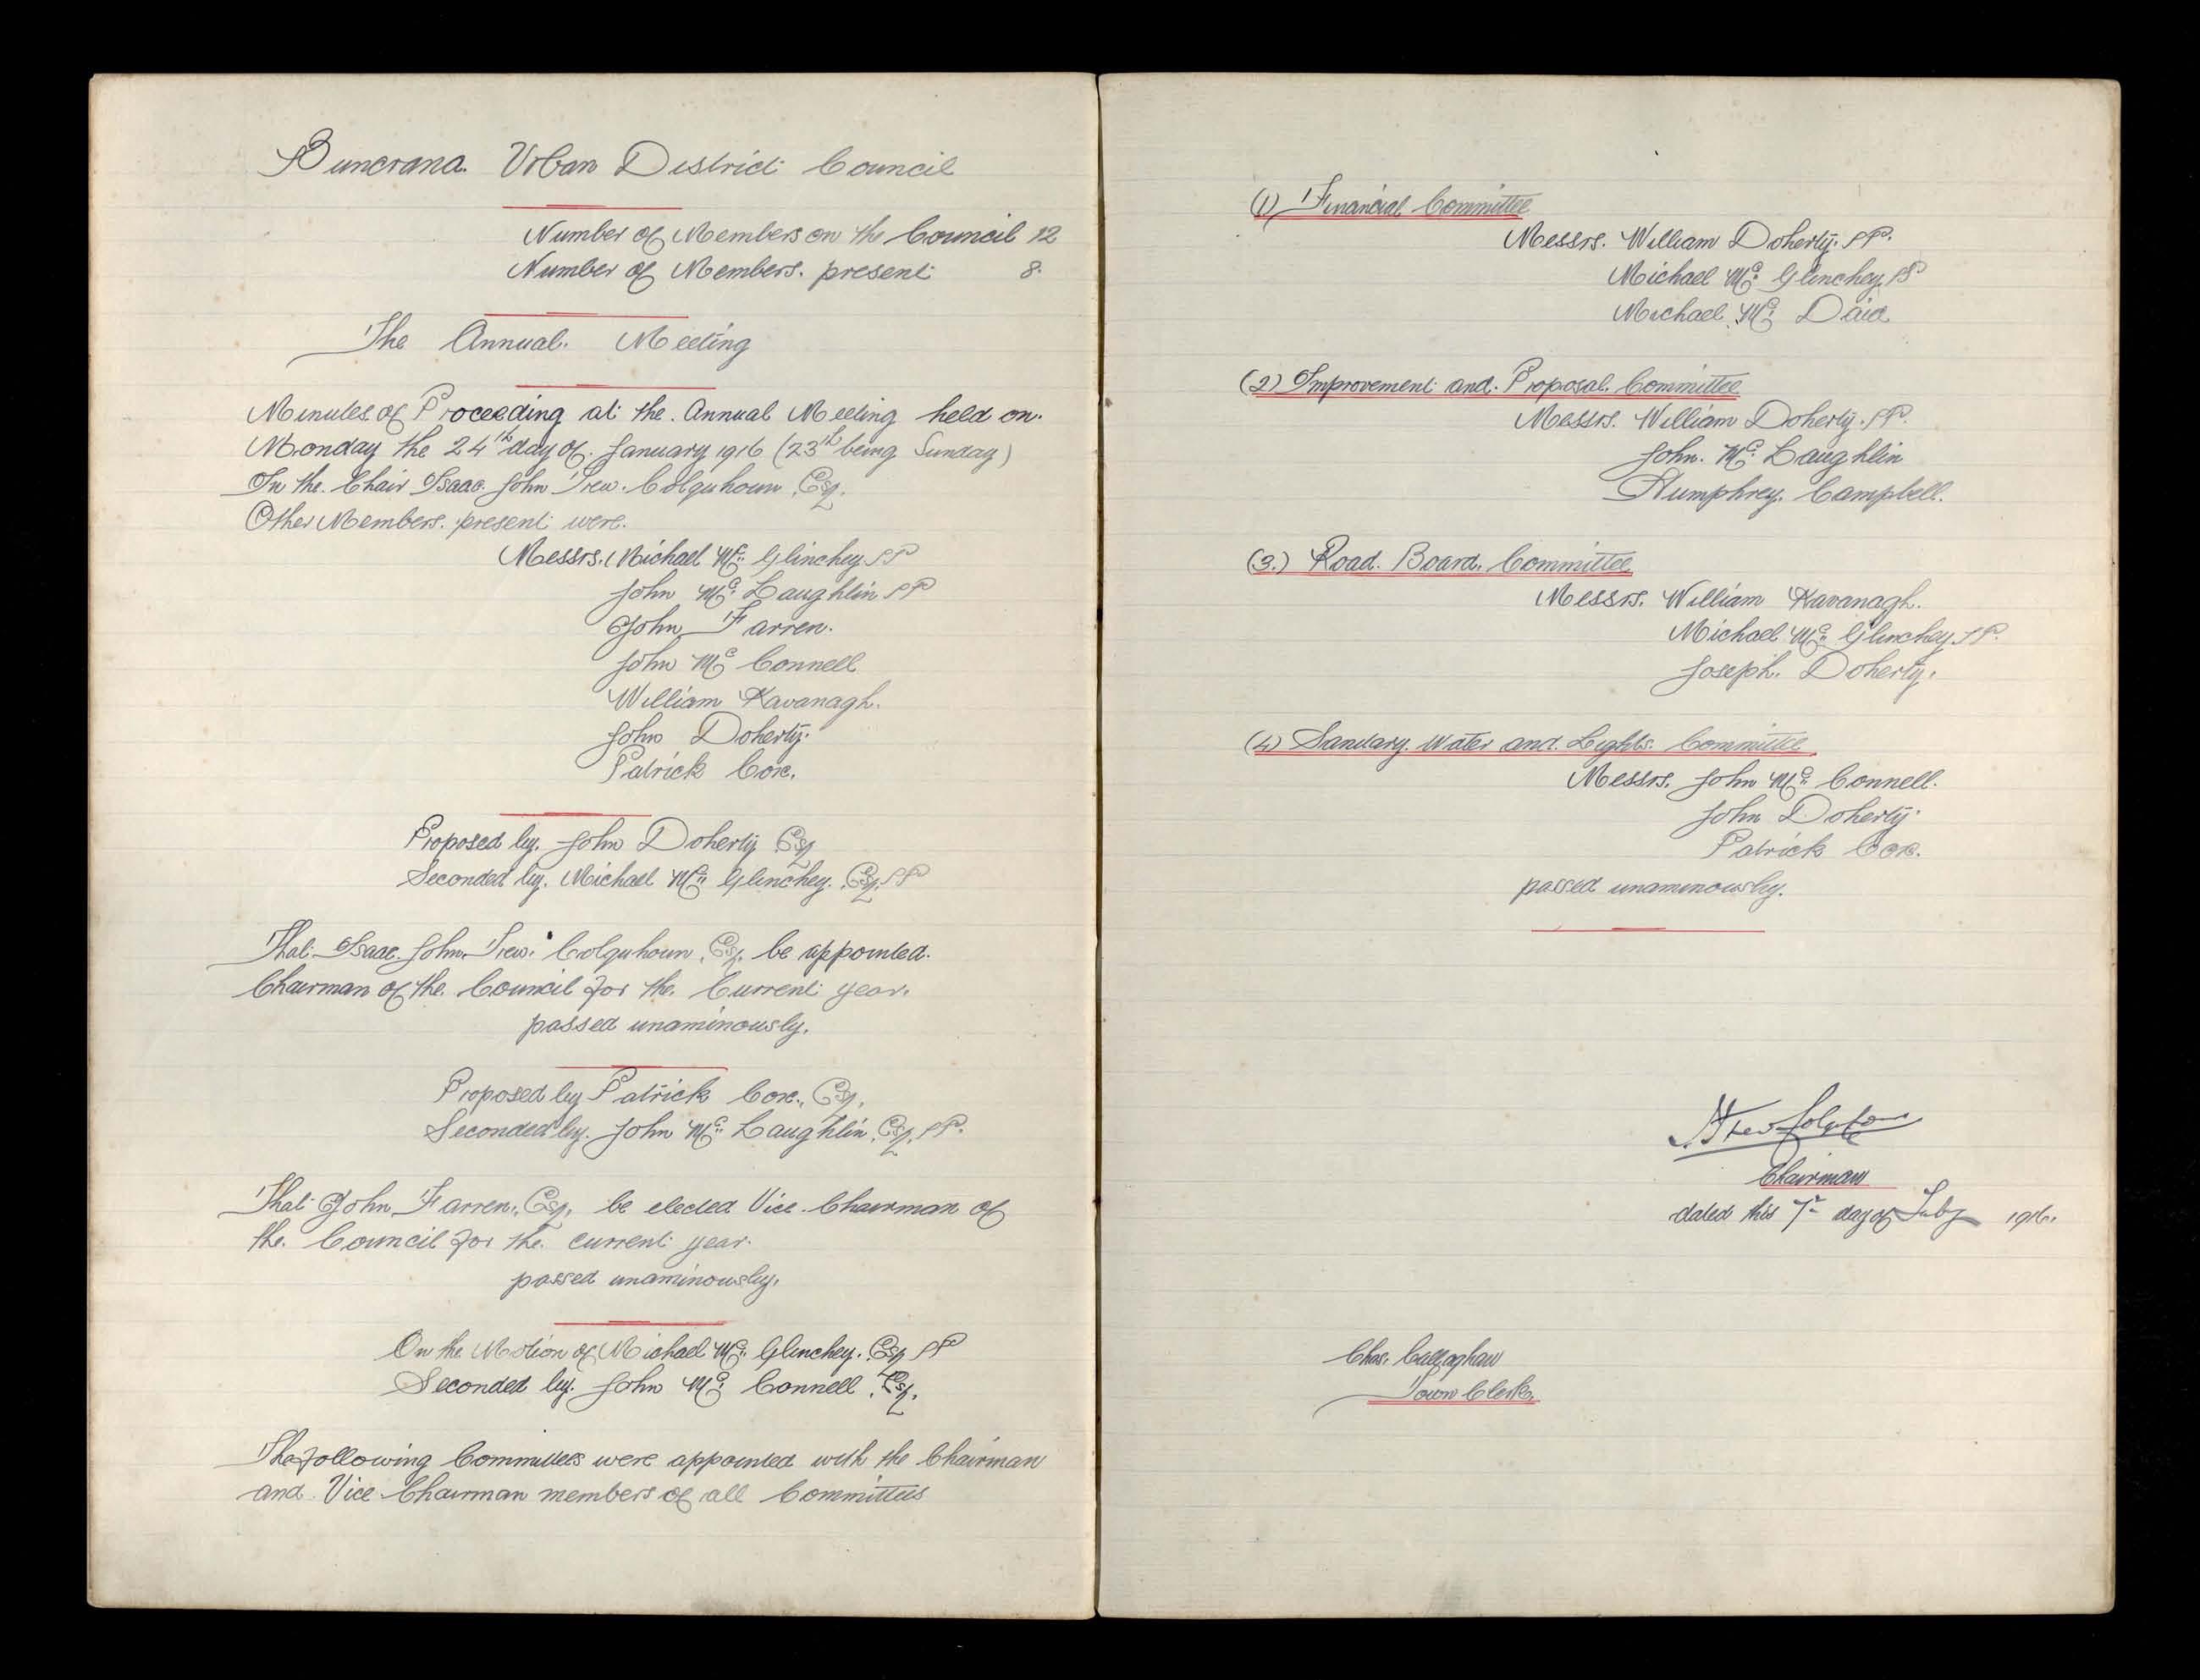 Buncrana Urban District Council
Number of Members on the Council 12
Number of Members present 8.
The Annual Meeting
Minutes of Proceeding at the Annual Meeting held on
Monday the 24th day of January 1916 (23th being Sunday)
In the Chair Isaac John Trew Colquhoun Esq.
Other Members present were.
Messrs. Michael Mc Glinchey JP
John Mc Laughlin JP
John Farren.
John Mc Connell
William Kavanagh.
John Doherty.
Patrick Cox.
Proposed by John Doherty Esq
Seconded by Michael Mc Glinchey Esq. JP
That Isaac John Trew Colquhoun Esq. be appointed
Chairman of the Council for the Current year.
passed unaminously.
Proposed by Patrick Cox, Esq.
Seconded by John Mc Laughlin, Esq. JP.
That John Farren, Esq. be elected Vice Chairman of
the Council for the current year.
passed unaminously.
On the Motion of Michael Mc Glinchey Esq JP
Seconded by John Mc Connell Esq.
The following Committees were appointed with the Chairman
and Vice Chairman members of all Committees
(1) Financial Committee
Messrs. William Doherty. JP.
Michael Mc Glinchey JP
Michael Mc Daid
(2) Improvement and Proposal Committee
Messrs. William Doherty. JP.
John Mc Laughlin
Humphrey Campbell.
(3.) Road Board Committee
Messrs. William Kavanagh.
Michael Mc Glinchey JP.
Joseph Doherty.
(4) Sanitary Water and Lights Committee
Messrs. John Mc Connell.
John Doherty
Patrick Cox.
passed unaminously.
Trew Colquhoun
Chairman
dated this 7th day of Feby 1916.
Chas. Callaghan
Town Clerk.